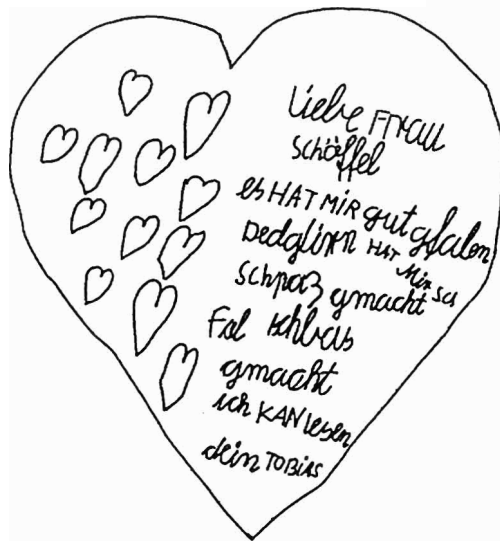 Liebe FRAU
schöffel
es HAT MiR gut gfalen
HAT Mir
schpaß gmacht
Fal schbas
gmacht
ich KAN lesen
dein TOBiAS